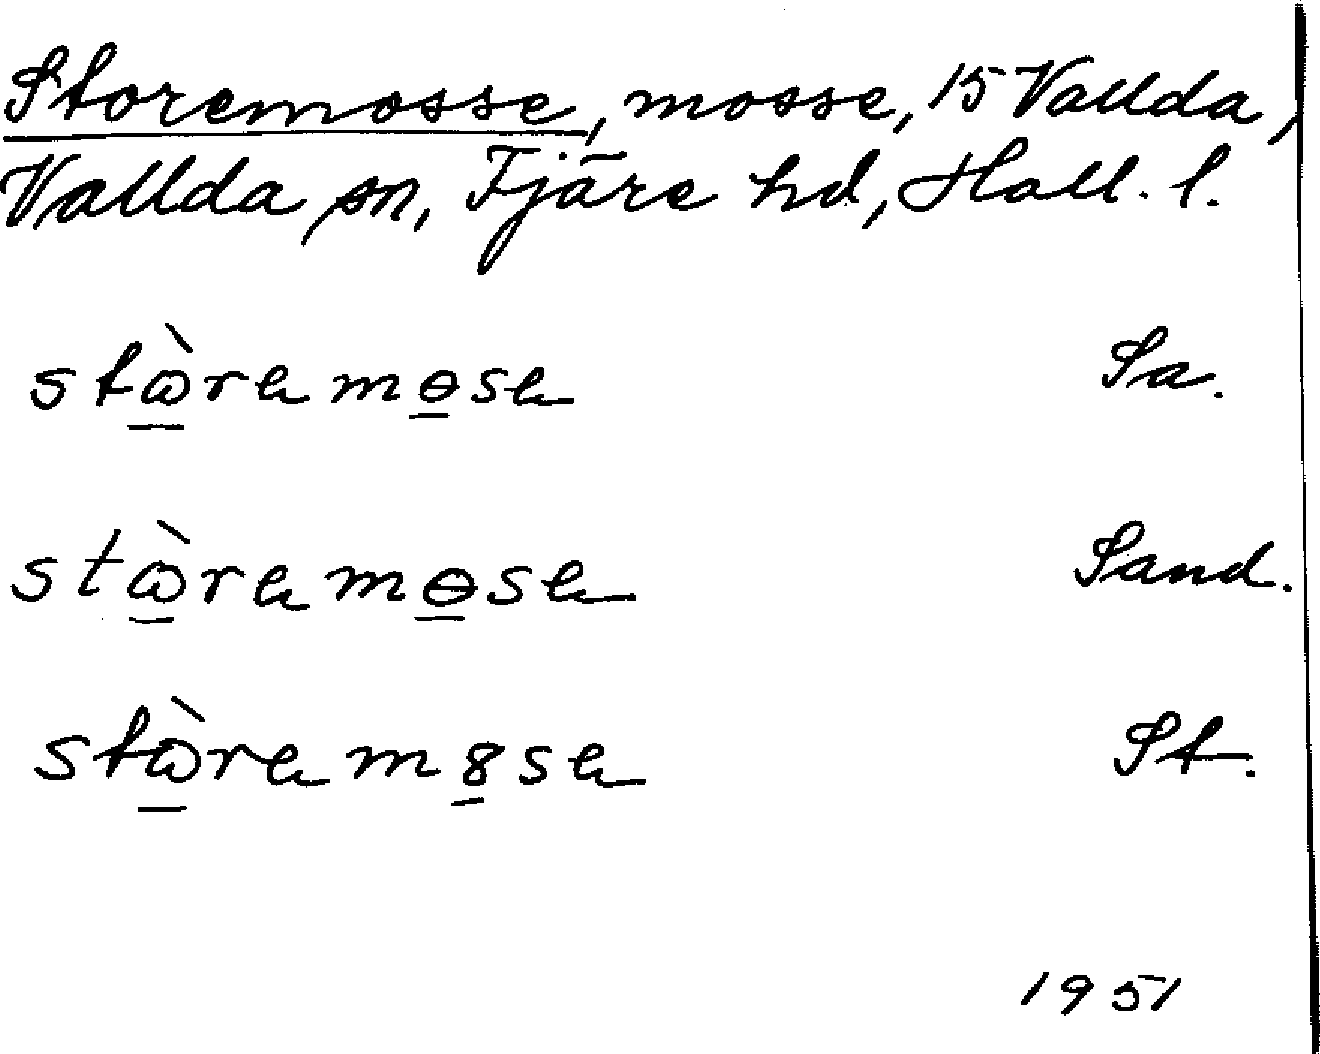 Storemosse, mosse, 15 Vallda,
Vallda sn, Fjäre hd, Hall. l.
stὼ̲rəmɵ̲sə Sa.
stὼ̲rəmɵ̲sə Sand.
stὼ̲rəm8̲sə St.
1951